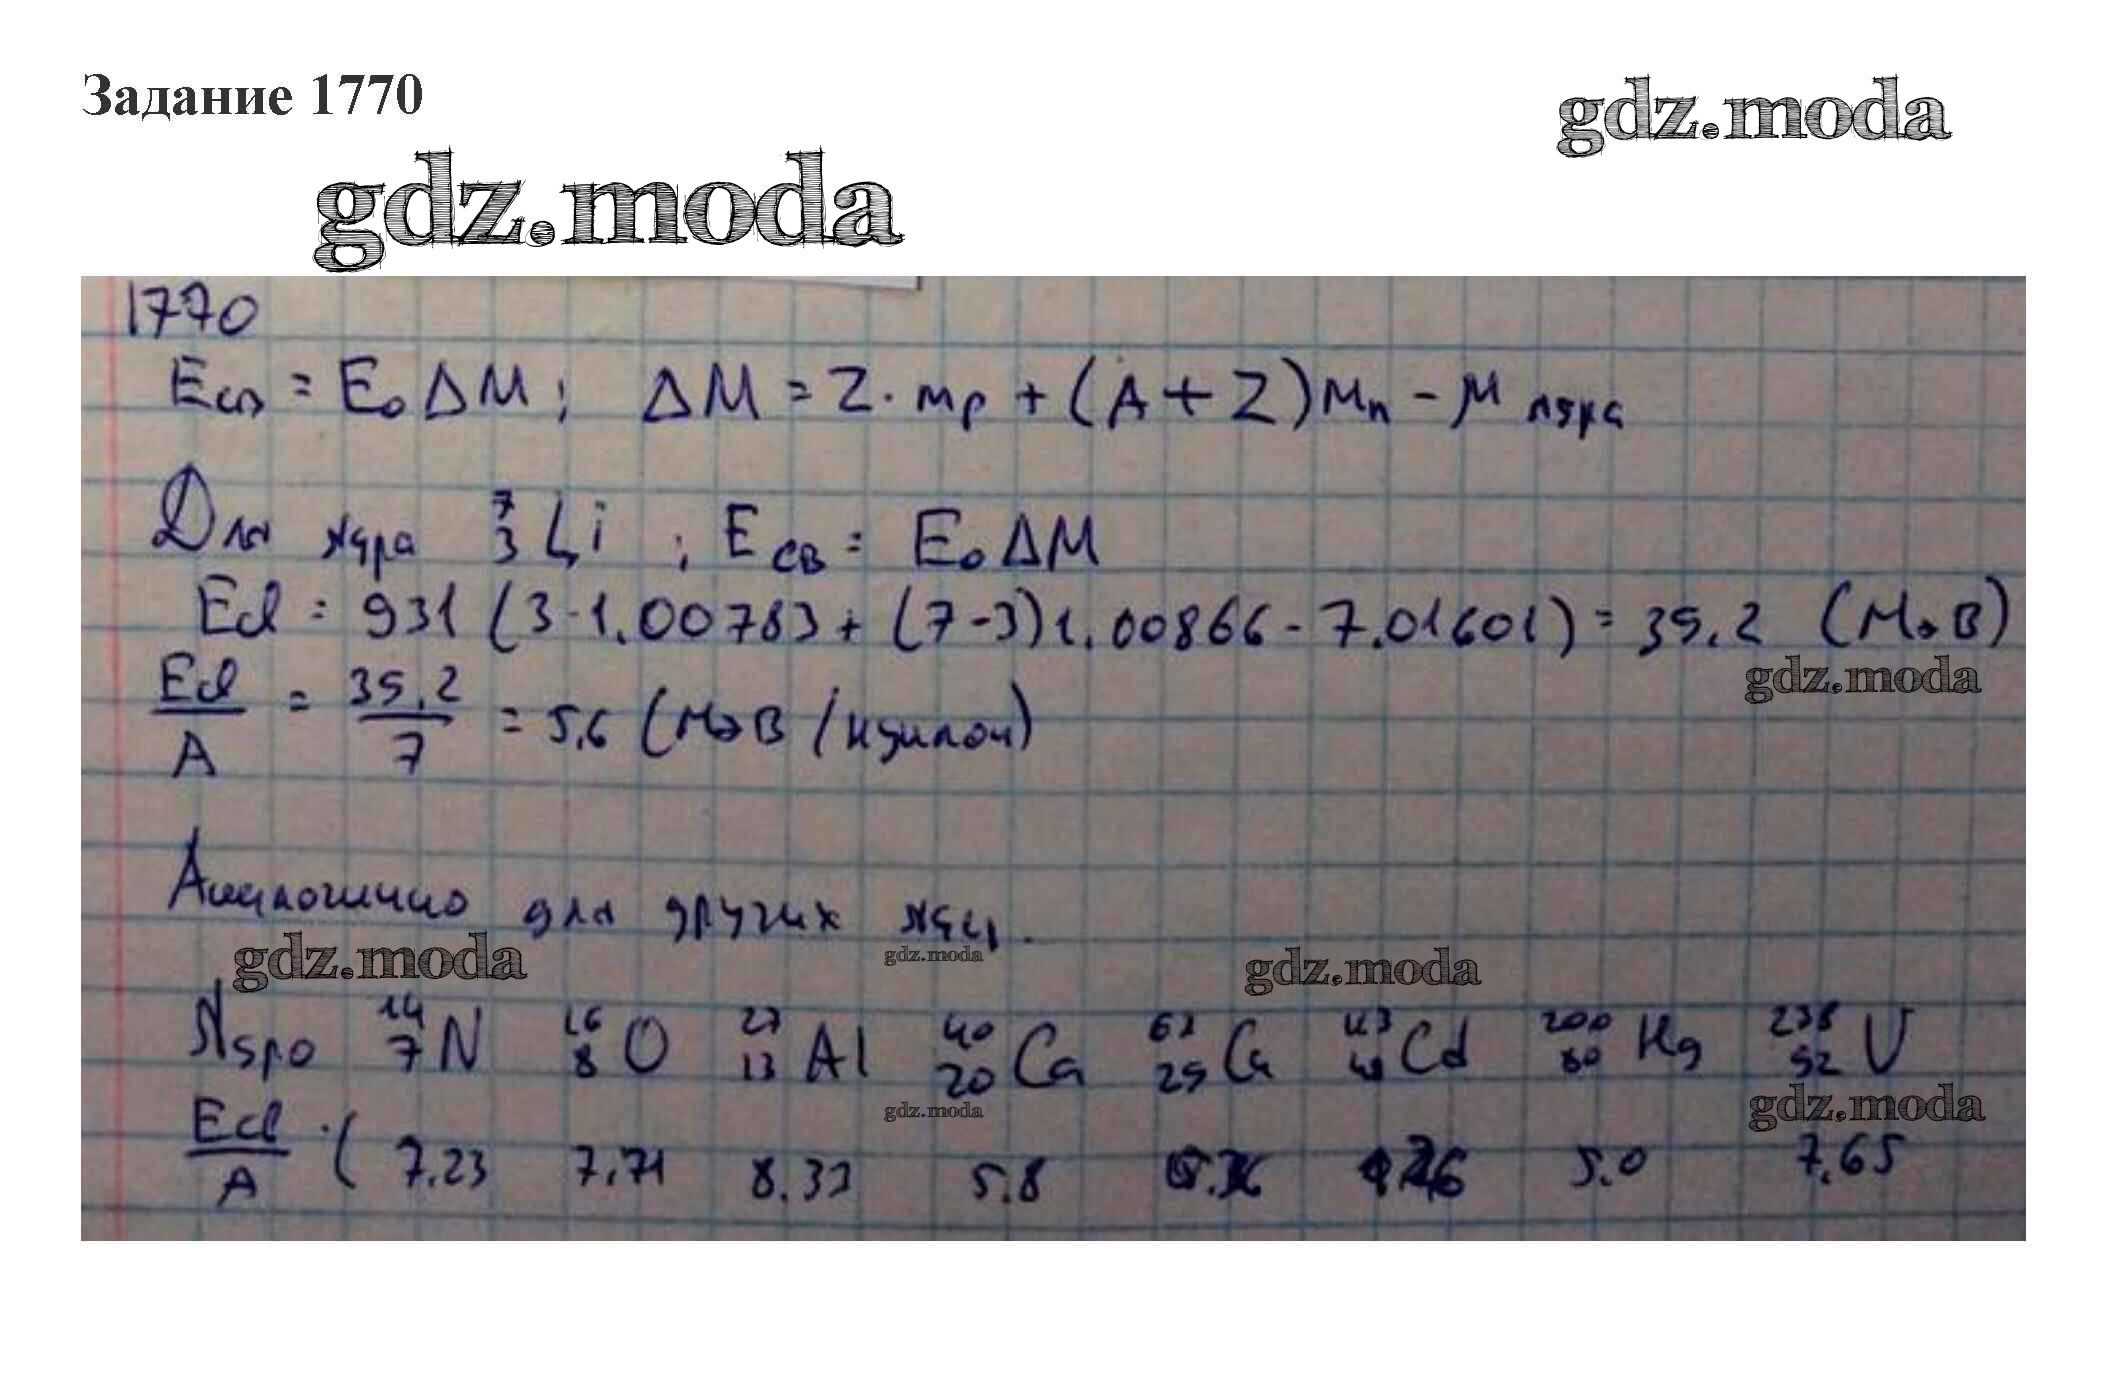 Задание 1770
gdz.moda
gdz.moda
1770
Eсв = E₀ΔM; ΔM = Z · mp + (A + Z)Mn - M ядра
Для ядра ⁷₃Li ; Eсв = E₀ΔM
Ecв = 931 (3·1.00783 + (7-3)1.00866 - 7.01601) = 39.2 (МэВ)
gdz.moda
Ecв/A = 39,2/7 = 5,6 (МэВ/нуклон)
Аналогично для других ядер.
gdz.moda gdz.moda gdz.moda
Ядро ¹⁴₇N ¹⁶₈O ²⁷₁₃Al ⁴⁰₂₀Ca Cu Cd ²⁰⁰₈₀Hg ²³⁸₉₂U
gdz.moda gdz.moda
Ecв/A · ( 7.23 7.71 8.32 5.8 5.0 7.65